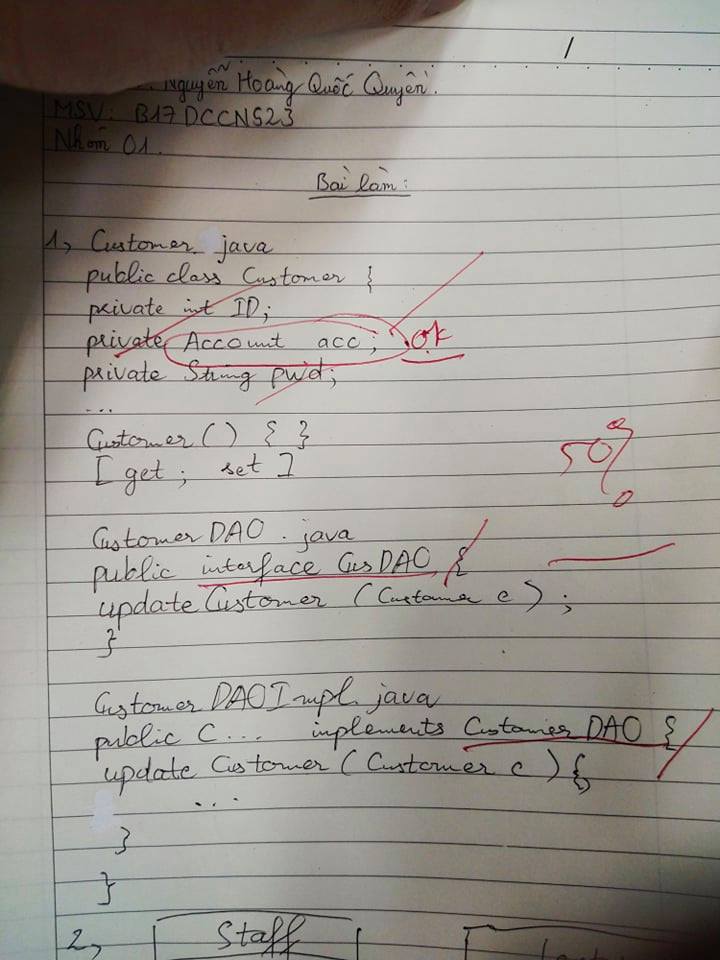 Nguyễn Hoàng Quốc Quyền.
MSV: B17DCCN523
Nhóm 01.
Bài làm:
1, Customer. java
public class Customer {
private int ID;
private Account acc; ok
private String pwd;
...
Customer() { }
[get; set]
50%
CustomerDAO.java
public interface CusDAO {
updateCustomer (Customer c);
}
CustomerDAOImpl.java
public C... implements CustomerDAO {
updateCustomer (Customer c) {
...
}
}
2, Staff